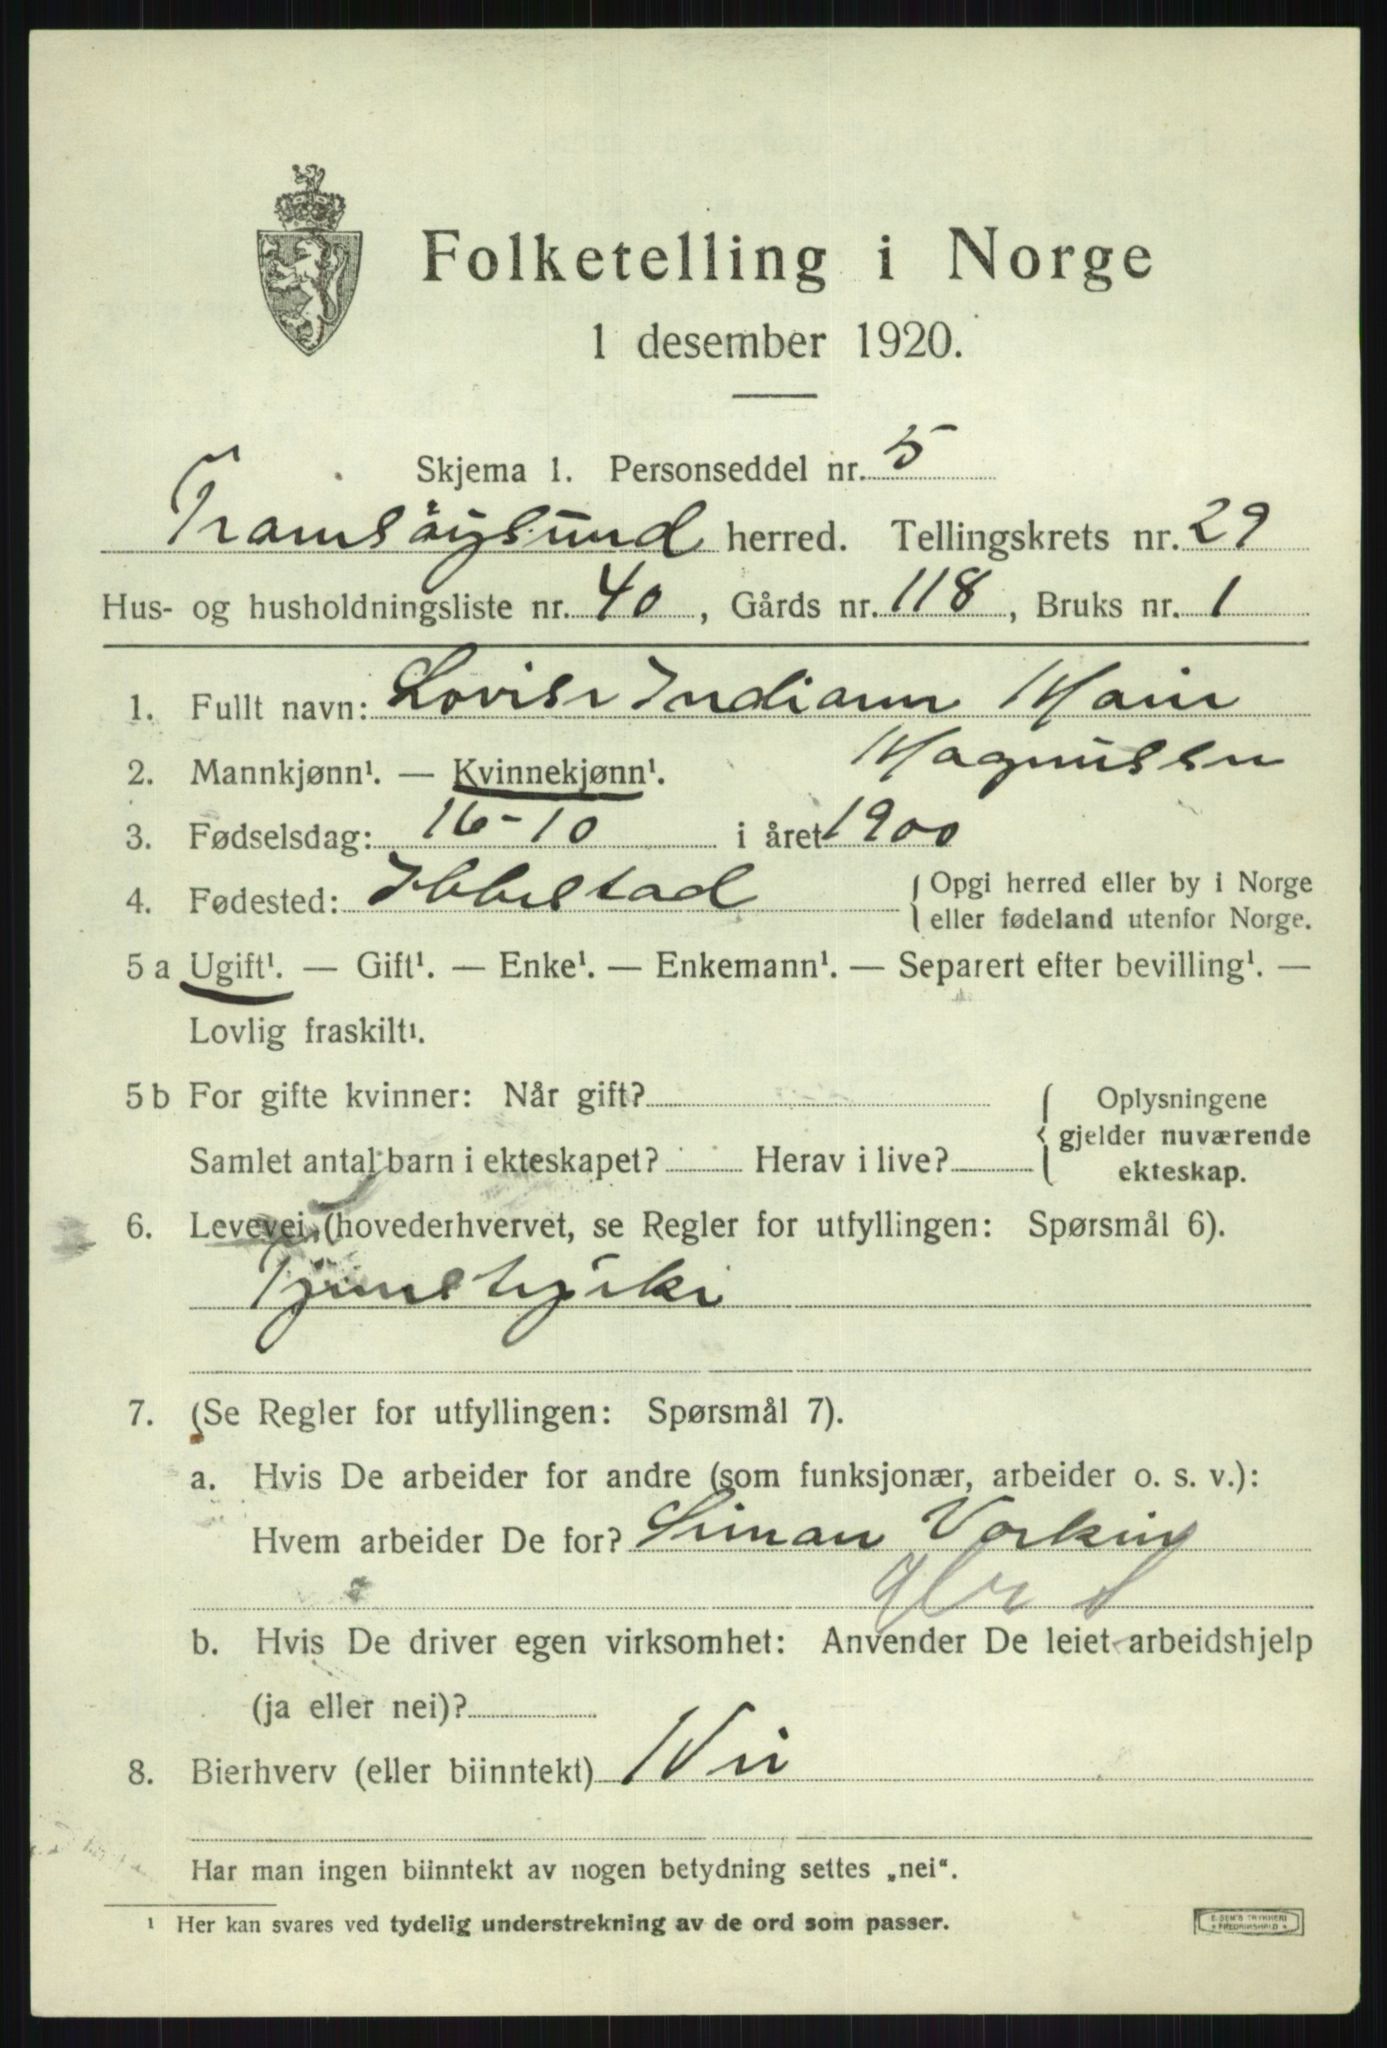 Folketelling i Norge
1 desember 1920.
Skjema 1. Personseddel nr. 5
Tromsöysund herred. Tellingskrets nr. 29
Hus- og husholdningsliste nr. 40, Gårds nr. 118, Bruks nr. 1
1. Fullt navn: Lovise Indiane Marie
Magnussen
2. Mannkjønn¹. — Kvinnekjønn¹.
3. Fødselsdag: 16-10 i året 1900
4. Fødested: Ibbestad { Opgi herred eller by i Norge
eller fødeland utenfor Norge.
5 a Ugift¹. — Gift¹. — Enke¹. — Enkemann¹. — Separert efter bevilling¹. —
Lovlig fraskilt¹.
5 b For gifte kvinner: Når gift?
Samlet antal barn i ekteskapet? Herav i live?
{ Oplysningene
gjelder nuværende
ekteskap.
6. Levevei (hovederhvervet, se Regler for utfyllingen: Spørsmål 6).
Tjenestepike
7. (Se Regler for utfyllingen: Spørsmål 7).
a. Hvis De arbeider for andre (som funksjonær, arbeider o. s. v.):
Hvem arbeider De for? Simon
b. Hvis De driver egen virksomhet: Anvender De leiet arbeidshjelp
(ja eller nei)?
8. Bierhverv (eller biinntekt) Nei
Har man ingen biinntekt av nogen betydning settes „nei“.
¹ Her kan svares ved tydelig understrekning av de ord som passer.